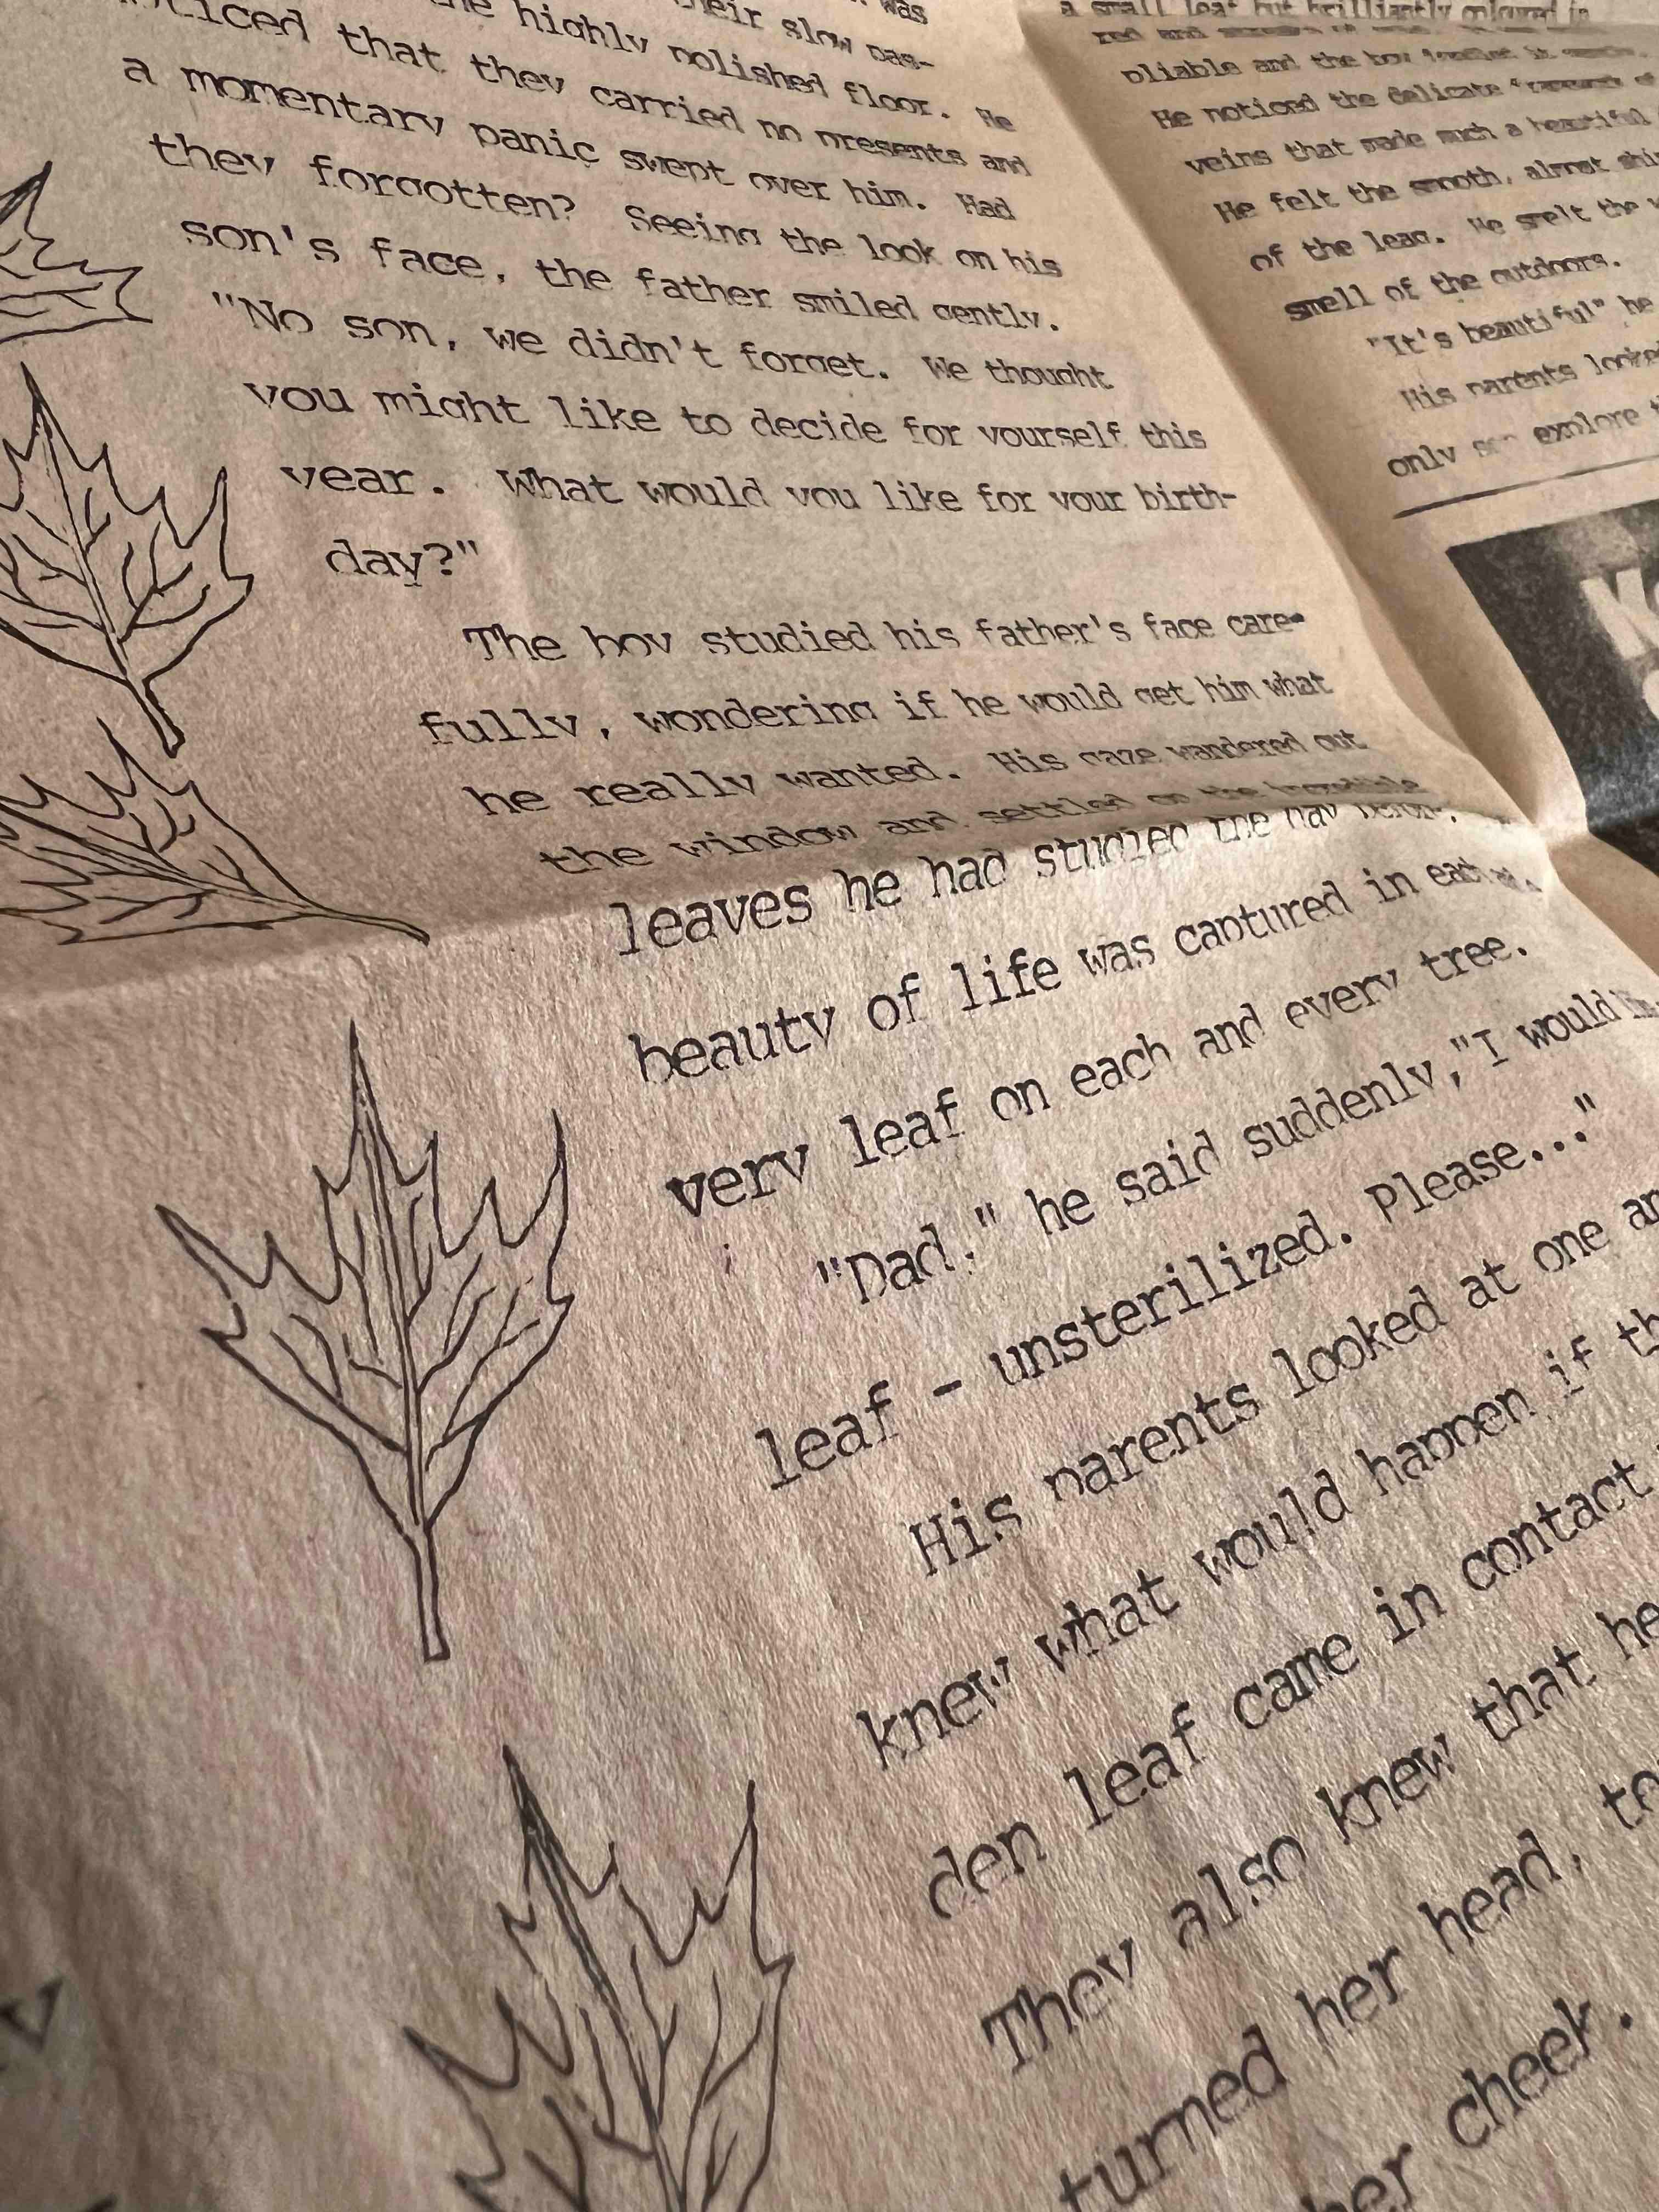 was
their slow pas-
the highly polished floor. He
noticed that they carried no presents and
a momentary panic swept over him. Had
they forgotten? Seeing the look on his
son's face, the father smiled gently.
"No son, we didn't forget. We thought
you might like to decide for yourself this
year. What would you like for your birth-
day?"
The boy studied his father's face care-
fully, wondering if he would get him what
he really wanted. His gaze wandered out
the window and settled on the incredible
leaves he had studied the day before.
beauty of life was captured in each
very leaf on each and every tree.
"Dad," he said suddenly, "I would
leaf - unsterilized. Please..."
His parents looked at one
knew what would happen if
den leaf came in contact
They also knew that
turned her head,
her cheek.
a small leaf but brilliantly coloured in
red and
pliable and the boy
He noticed the delicate
veins that made such a beautiful
He felt the smooth, almost
of the leag. He smelt the
smell of the outdoors.
"It's beautiful" he
His parents looked
only son explore